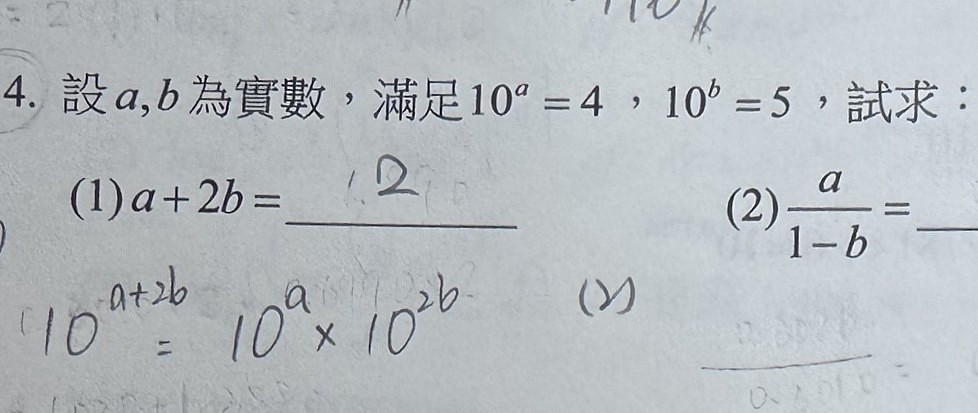 4. 設 a, b 為實數，滿足 10^a = 4，10^b = 5，試求：
(1) a + 2b = 2
(2) a/(1-b) =
10^(a+2b) = 10^a × 10^(2b)
(2)